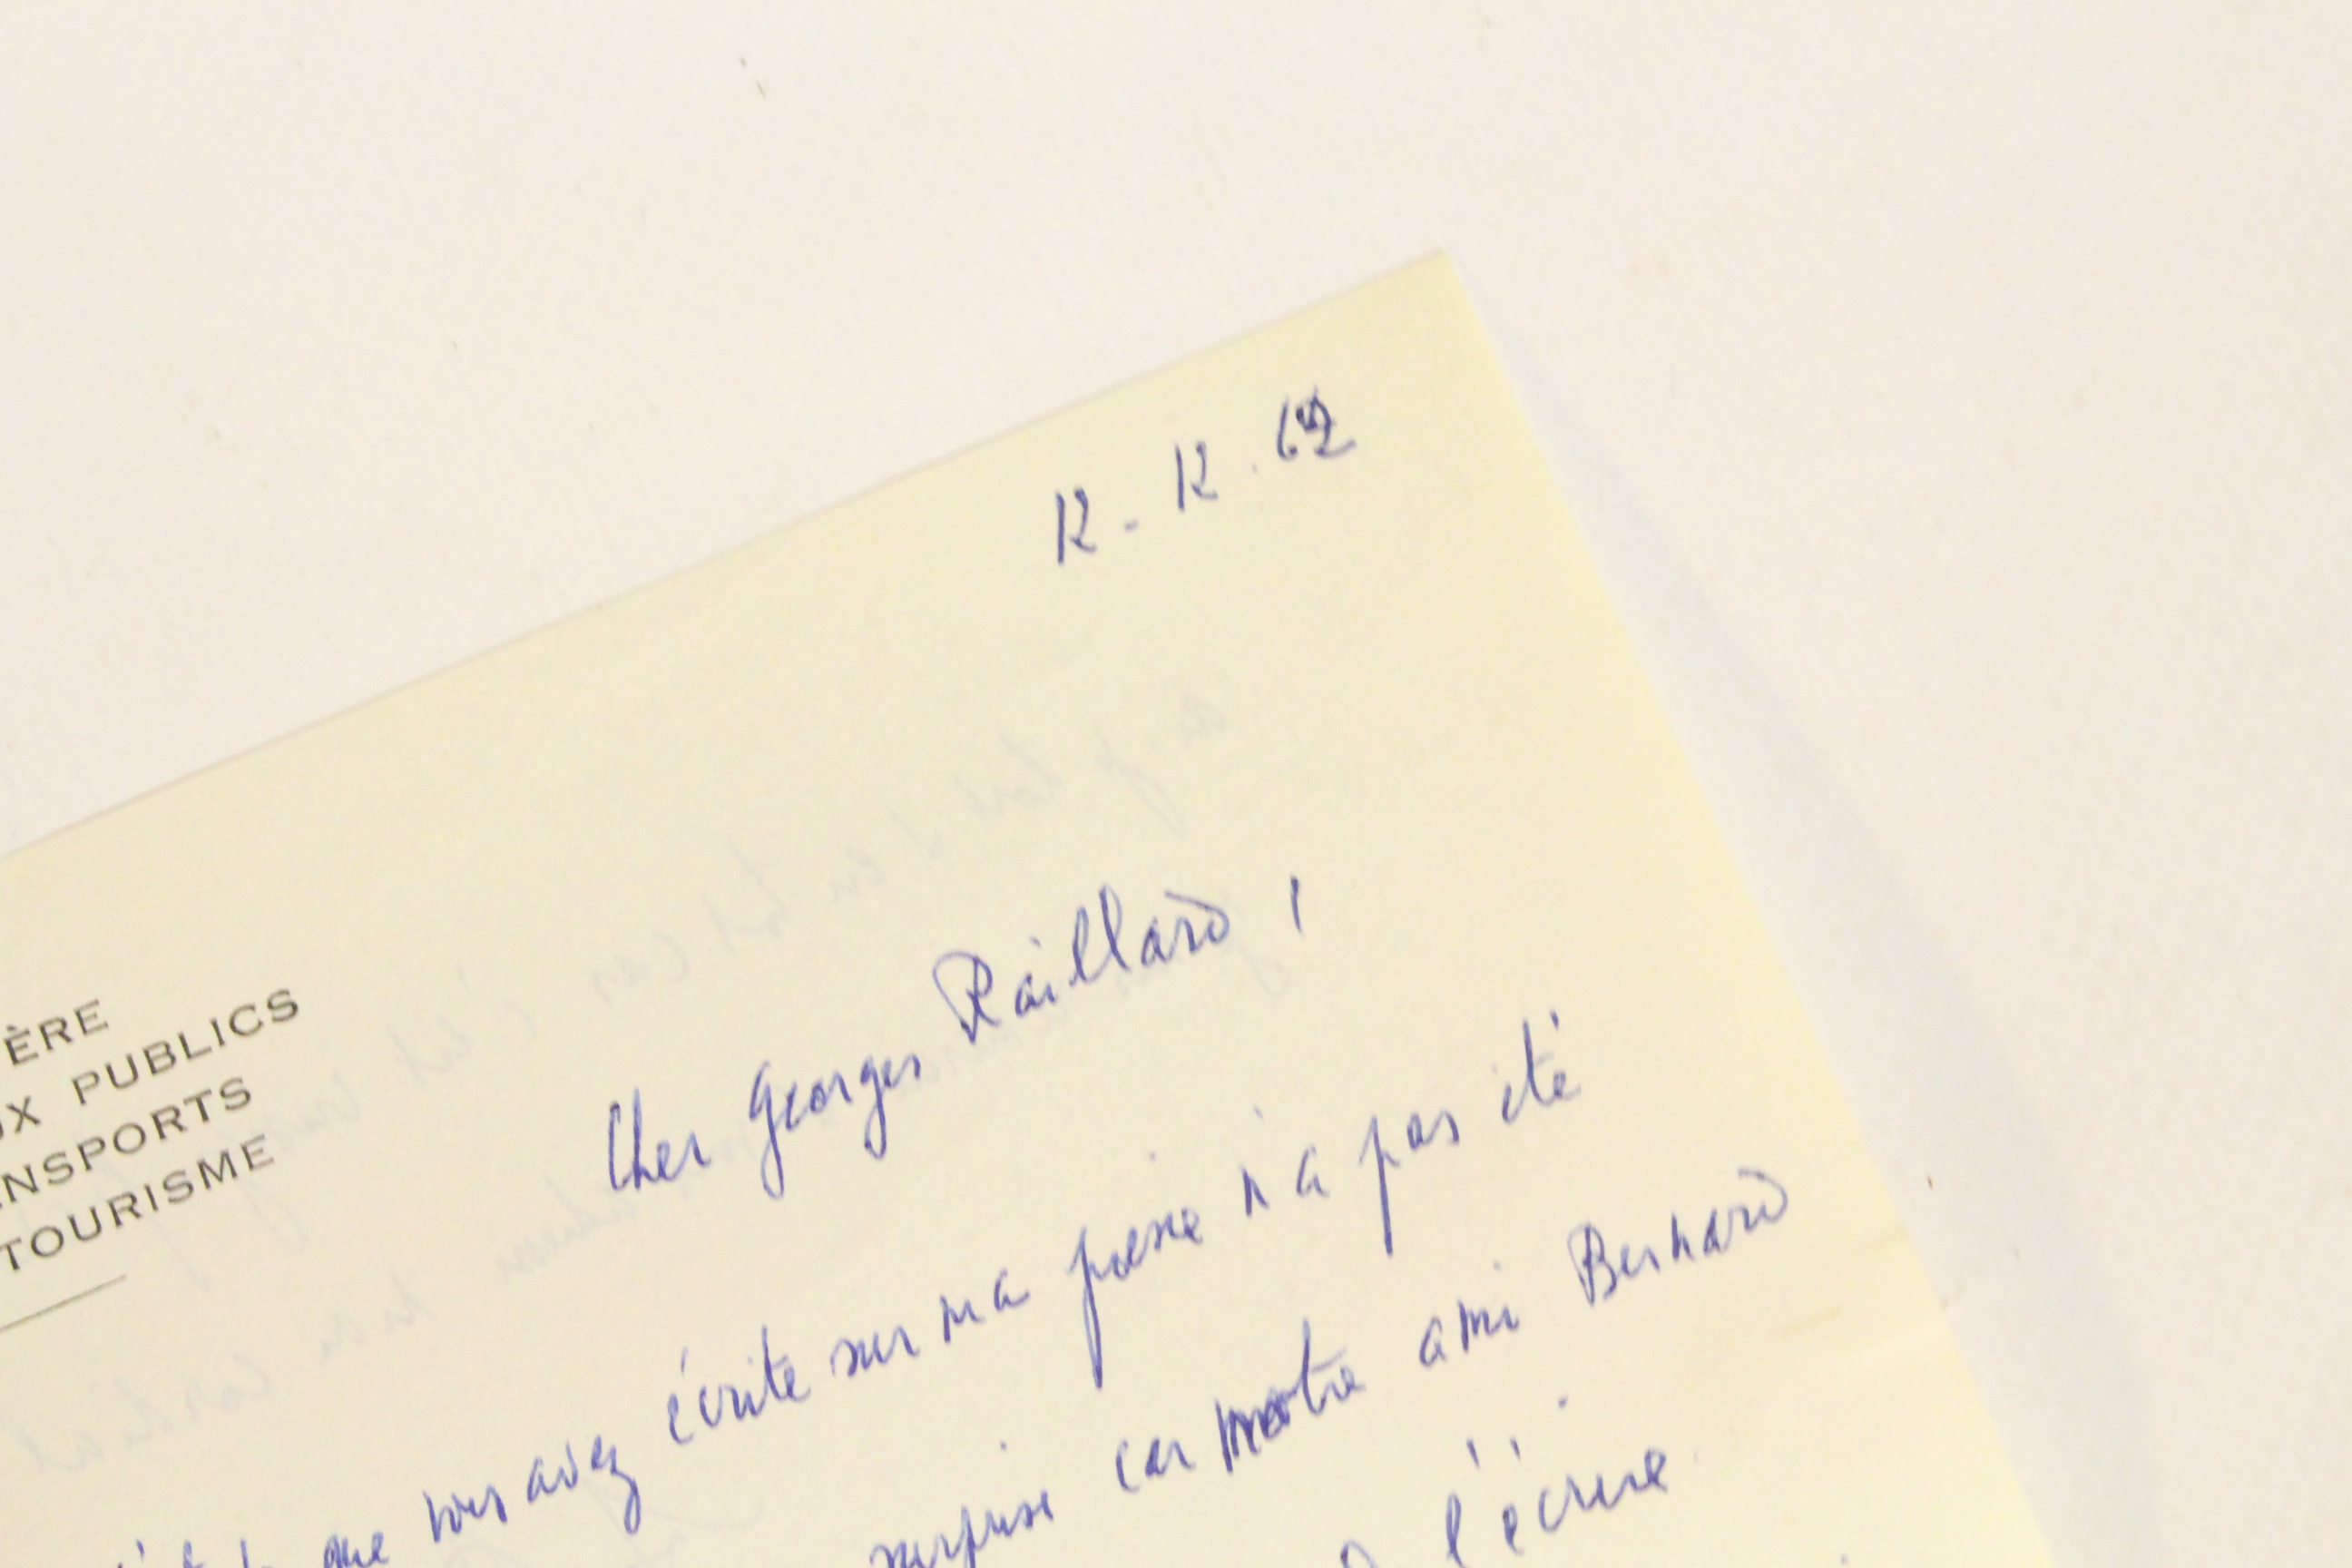 12-12.62
ÈRE
UX PUBLICS
ANSPORTS
TOURISME
Cher Georges Raillard,
que vous avez écrite sur ma poésie n'a pas été
surprise car notre ami Bernard
l'écrire.